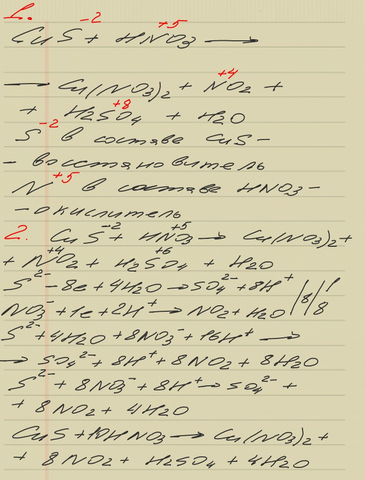 1. -2 +5
CuS + HNO3 →
+4
→ Cu(NO3)2 + NO2 +
+8
+ H2SO4 + H2O
S⁻² в составе CuS -
- восстановитель
N⁺⁵ в составе HNO3 -
- окислитель
-2 +5
2. CuS + HNO3 → Cu(NO3)2 +
+4 +6
+ NO2 + H2SO4 + H2O
S²⁻ - 8e + 4H2O → SO4²⁻ + 8H⁺ | 8 | 1
NO3⁻ + 1e + 2H⁺ → NO2 + H2O | | 8
S²⁻ + 4H2O + 8NO3⁻ + 16H⁺ →
→ SO4²⁻ + 8H⁺ + 8NO2 + 8H2O
S²⁻ + 8NO3⁻ + 8H⁺ → SO4²⁻ +
+ 8NO2 + 4H2O
CuS + 10HNO3 → Cu(NO3)2 +
+ 8NO2 + H2SO4 + 4H2O